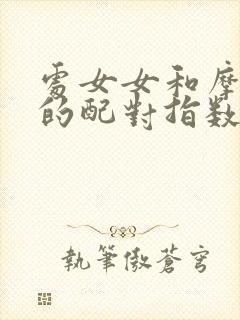 處女女和摩
的配對指数
執筆傲蒼穹